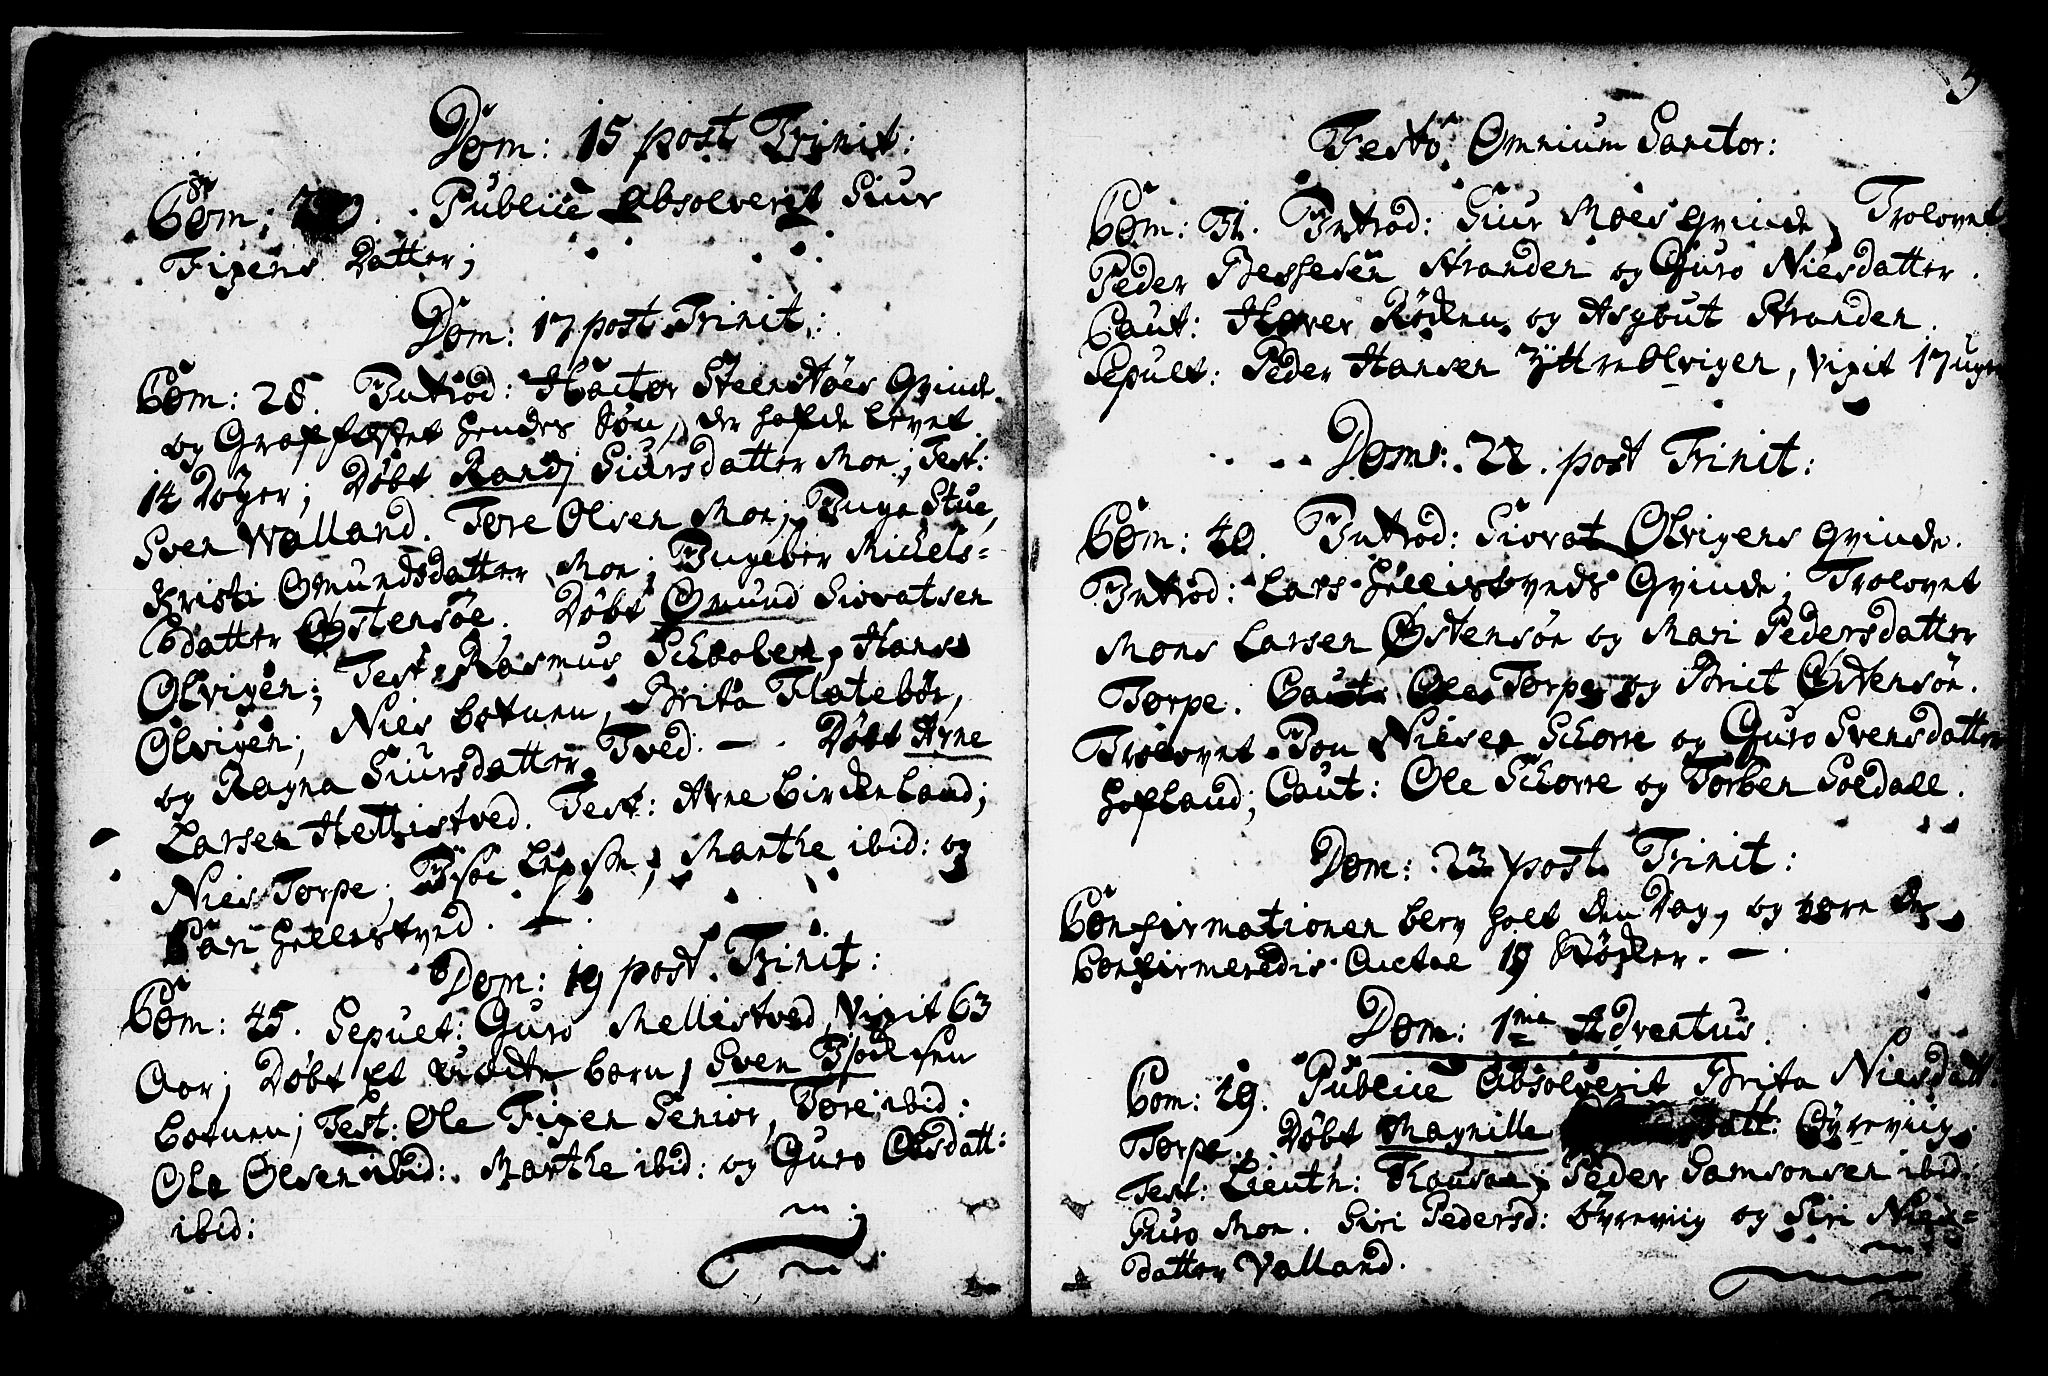 Dom: 15 post Trinit:
Com: Publice absolverit Siur
Fixens Datter;
Dom: 17 post Trinit:
Com: 28. Introd: Hactor Steenstøes Qvinde
og Graffæstet hendes Søn, der hafde levet
14 Dager; Døbt Randj Siursdatter Moe; Test:
Sven Walland. Tore Olsen Moe; Inga Stue,
Kristi Omundsdatter Moe; Ingebor Michels-
datter Østensøe. Døbt Omund Siovatsen
Olvigen; Test: Rasmus Hans
Olvigen; Niels Botnen, Brita Flatebøe,
og Ragna Siursdatter Tved. — . Døbt Arne
Larsen Hellistved. Test: Arne Birkenland;
Niels Torpe; Marthe ibid: og
Pari Hellestved.
Dom: 19 post Trinit:
Com: 45. Sepult: Guro Mellestved, Vixit 63
Aar; Døbt et uægte Barn, Sven
Botnen; Test: Ole Fixen Senior, Tore ibid:
Ole Olsen ibid: Marthe ibid: og Guro Olsdatt:
ibid:
Festo Omnium Sanctor:
Com: 31. Introd: Siur Moes Qvinde, Trolovet
Peder Stranden og Guro Nielsdatter.
Caut: og Asgout Stranden.
Sepult: Peder Hansen Yttre Olvigen, vixit 17 uger
Dom: 22. post Trinit:
Com: 40. Introd: Siovat Olvigens Qvinde.
Introd: Lars Hellistveds Qvinde; Trolovet
Mons Larsen Østensøe og Mari Pedersdatter
Torpe. Caut: Ole Torpe og Briet Østensøe.
Trolovet Jon Nielsen Skorre og Guro Svensdatter
Hofland; Caut: Ole Skorre og Torben Soldall.
Dom: 23. post Trinit:
Confirmationen blev holt den Dag, og vare de
Confirmeredis Antal 19
Dom: 1me Adventus.
Com: 29. Publice absolverit Brita Nielsdatt:
Torpe. Døbt Magnille datt: Øyreviig
Test: Lieutn: Peder Samsonsen ibid:
Guro Moe. Siri Pedersd: Øyreviig og Siri Niels-
datter Valland.